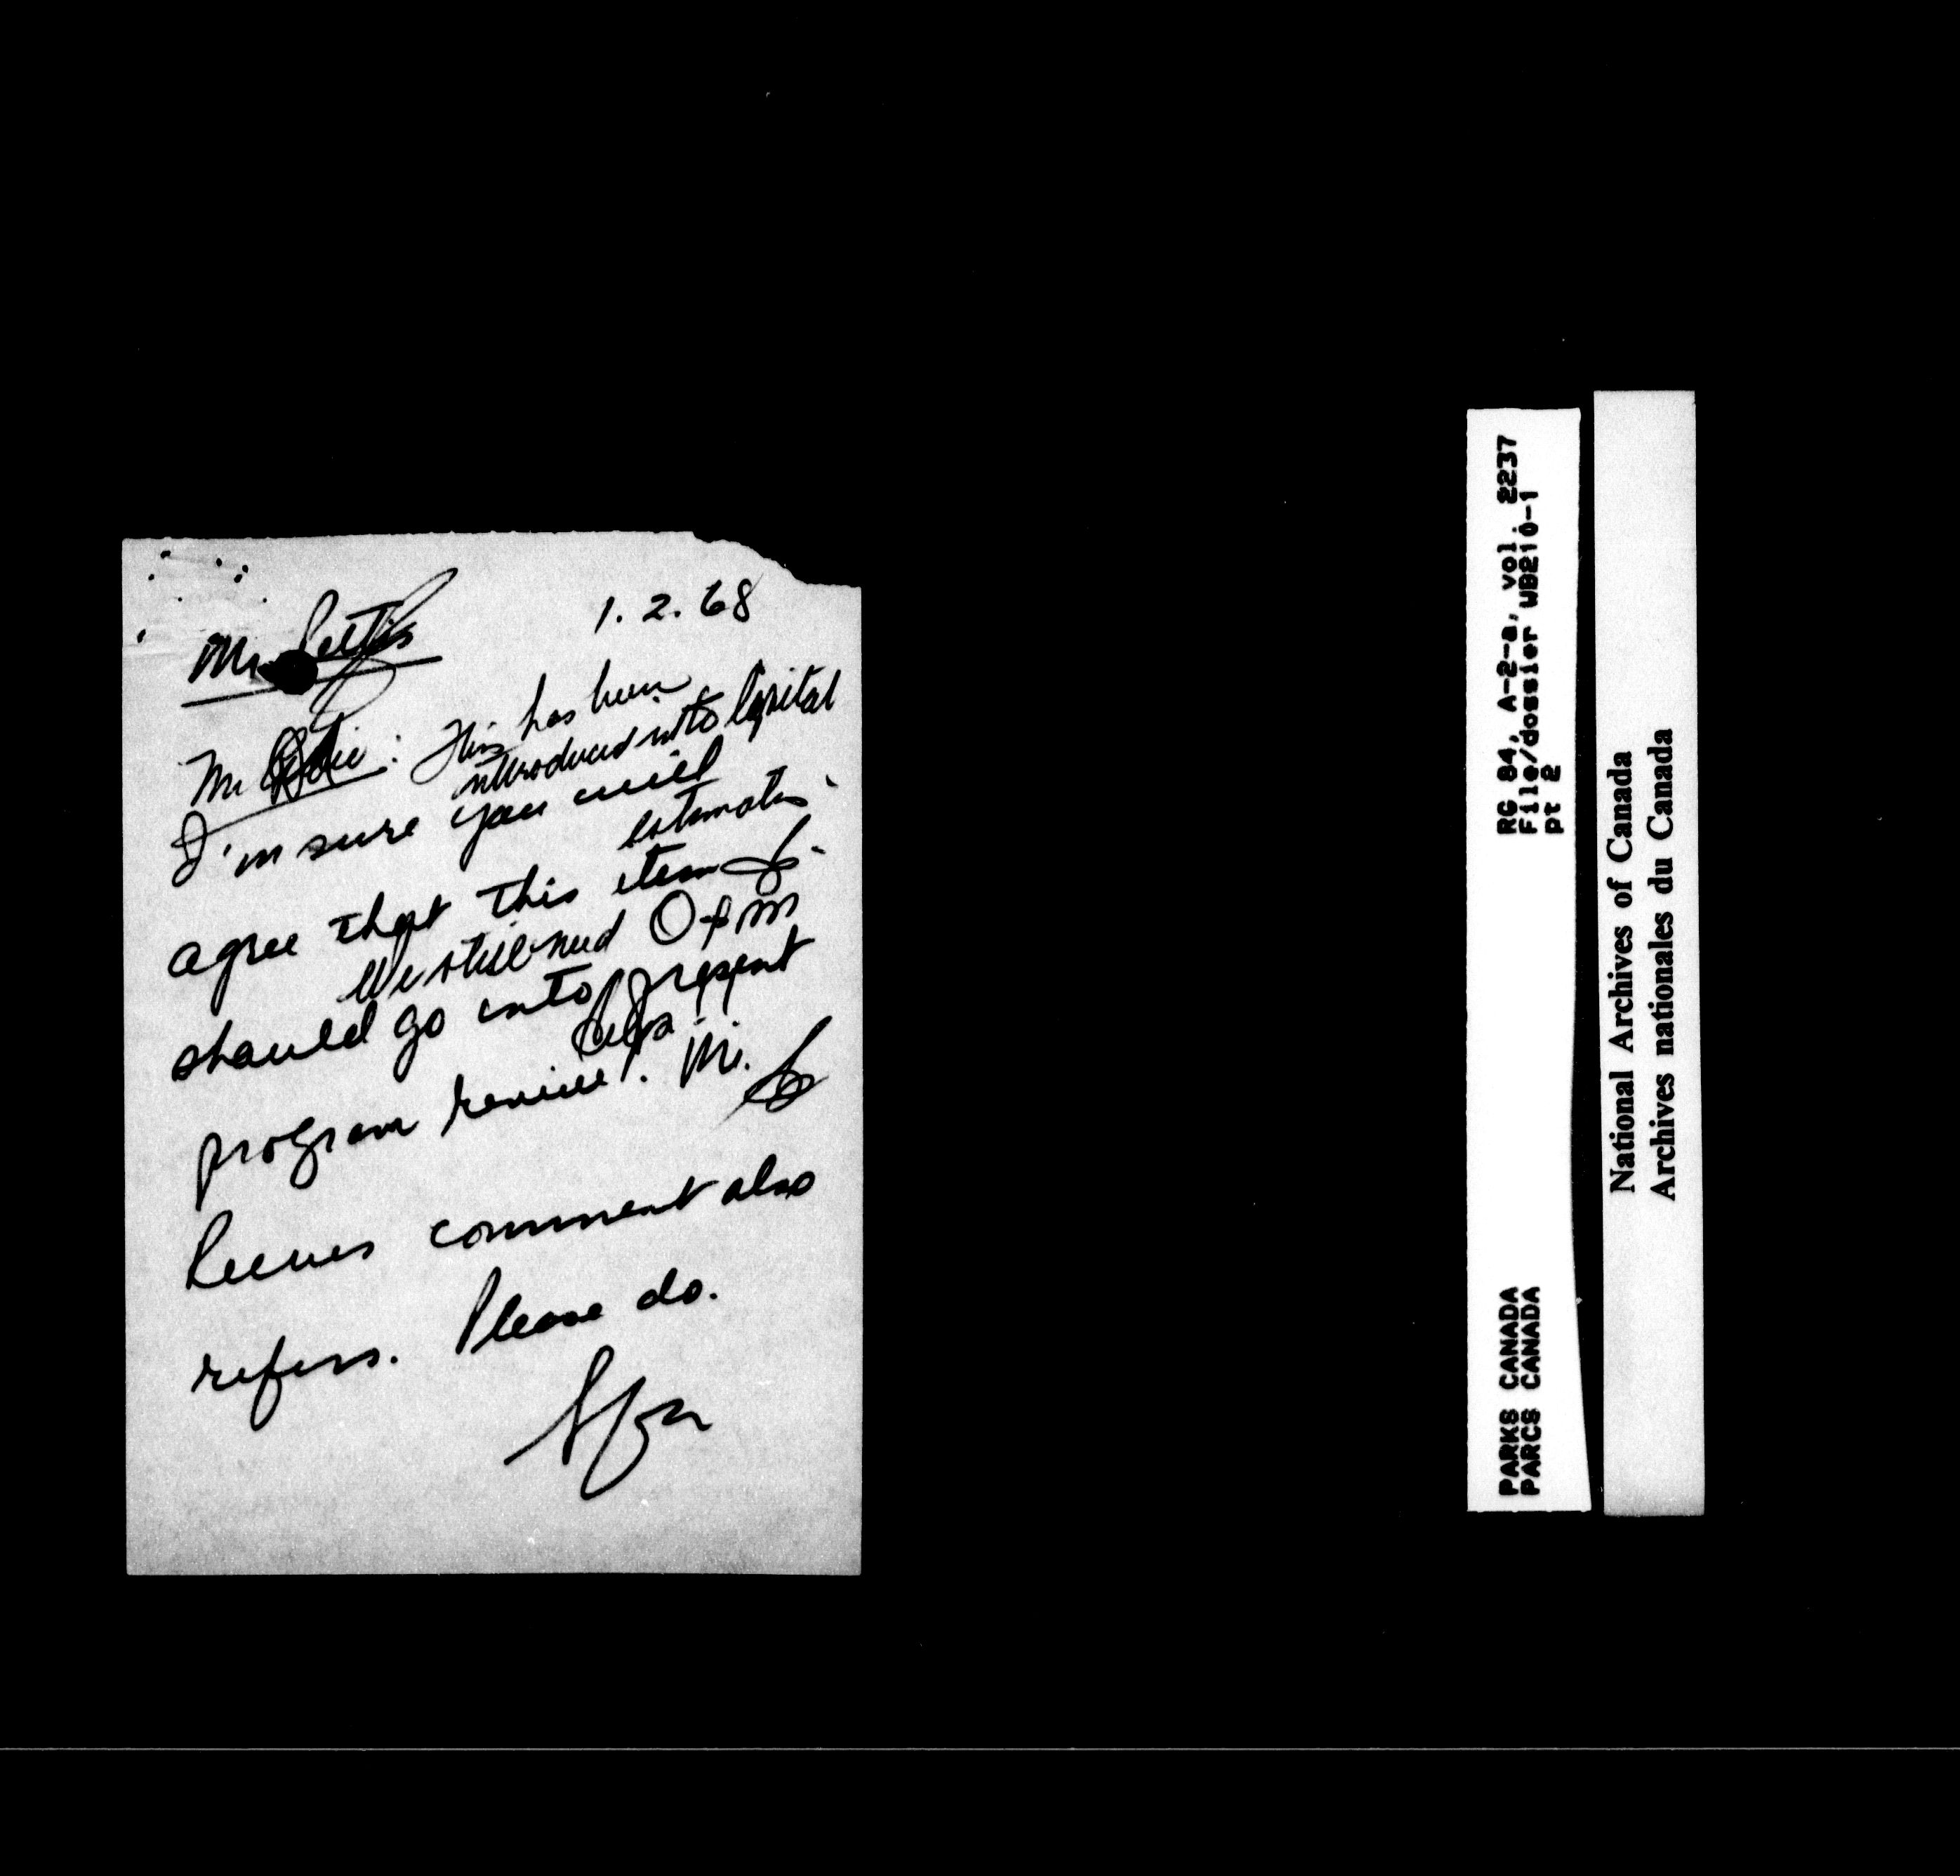 1. 2. 68
Mr. Pettis
Mr. : This has been
introduced into Capital
I'm sure you will
estimates.
agree that this item
We still need O & M
should go into present
program review. Mr.
Reeves comment also
refers. Please do.
RG 84, A-2-a, vol. 2237
File/dossier WB210-1
pt 2
PARKS CANADA
PARCS CANADA
National Archives of Canada
Archives nationales du Canada